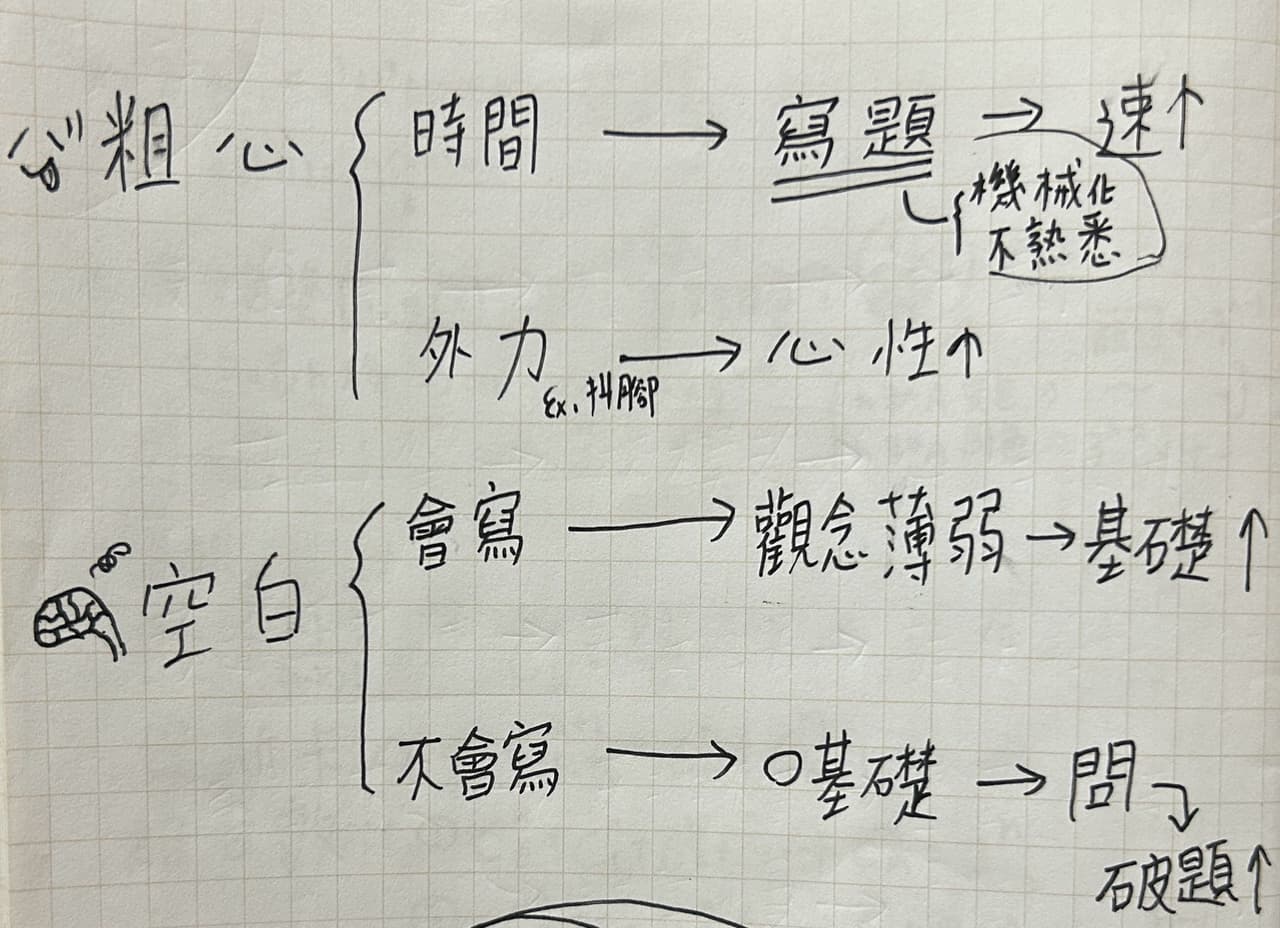 粗心 { 時間 → 寫題 → 速↑
{ 機械化
不熟悉
外力 → 心性↑
Ex. 抖腳
空白 { 會寫 → 觀念薄弱 → 基礎↑
不會寫 → 0基礎 → 問
破題↑